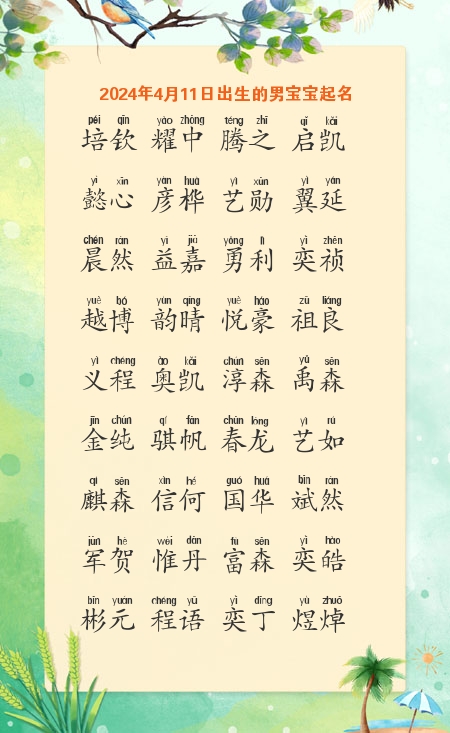 2024年4月11日出生的男宝宝起名
péi qīn yào zhōng téng zhī qǐ kǎi
培钦 耀中 腾之 启凯
yì xīn yàn huà yì xūn yì yán
懿心 彦桦 艺勋 翼延
chén rán yì jiā yǒng lì yì zhēn
晨然 益嘉 勇利 奕祯
yuè bó yùn qíng yuè háo zǔ liáng
越博 韵晴 悦豪 祖良
yì chéng ào kǎi chún sēn yǔ sēn
义程 奥凯 淳森 禹森
jīn chún qí fān chūn lóng yì rú
金纯 骐帆 春龙 艺如
qí sēn xìn hé guó huá bīn rán
麒森 信何 国华 斌然
jūn hè wéi dān fù sēn yì hào
军贺 惟丹 富森 奕皓
bīn yuán chéng yǔ yì dīng yù zhuō
彬元 程语 奕丁 煜焯